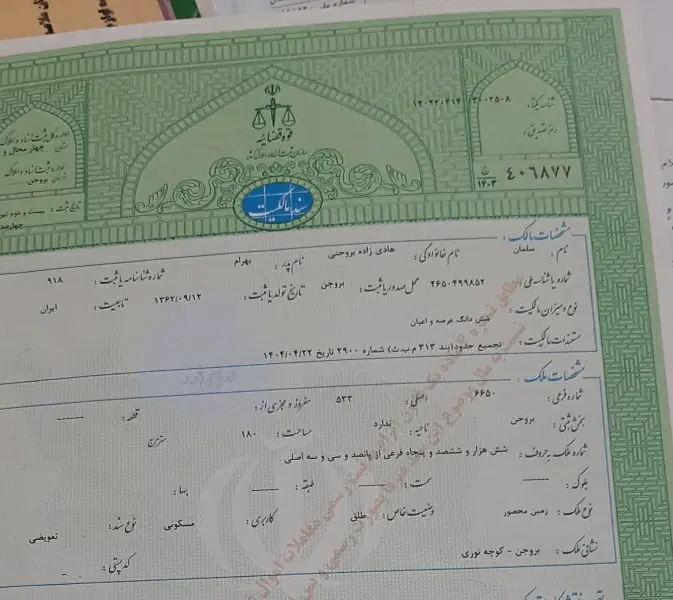 شناسه یکتا: ۱۴۰۲۲۰۳۱۴۰۰۳۱۰۰۲۵۰۸
رمز تصدیق:
قوه قضائیه
سازمان ثبت اسناد و املاک کشور
۴۰۶۸۷۷ ع ۱۴۰۳
اداره کل ثبت اسناد و املاک
استان چهارمحال و
اداره ثبت اسناد و املاک
بروجن
تاریخ ثبت: بیست و دوم تیر
سند مالکیت
مشخصات مالک
نام: سلمان نام خانوادگی: هادی زاده بروجنی نام پدر: بهرام شماره شناسنامه یا ثبت: ۹۱۸
شماره یا شناسه ملی: ۴۶۵۰۴۹۹۸۵۲ محل صدور یا ثبت: بروجن تاریخ تولد یا ثبت: ۱۳۶۲/۰۹/۱۲ تابعیت: ایران
نوع و میزان مالکیت: شش دانگ عرصه و اعیان
مستندات مالکیت: تجمیع حدود(بند ۳۱۳ م.ب.ث) شماره ۲۹۰۰ تاریخ ۱۴۰۴/۰۴/۲۲
مشخصات ملک
شماره فرعی: ۶۶۵۰ اصلی: ۵۳۳ مفروز و مجزی از: قطعه:
بخش ثبتی: بروجن ناحیه: ندارد مساحت: ۱۸۰ مترمربع
شماره ملک به حروف: شش هزار و ششصد و پنجاه فرعی از پانصد و سی و سه اصلی
بلوک: سمت: طبقه: بها:
نوع ملک: زمین محصور وضعیت خاص: طلق کاربری: مسکونی نوع سند: تعویضی
نشانی ملک: بروجن - کوچه نوری کدپستی: -